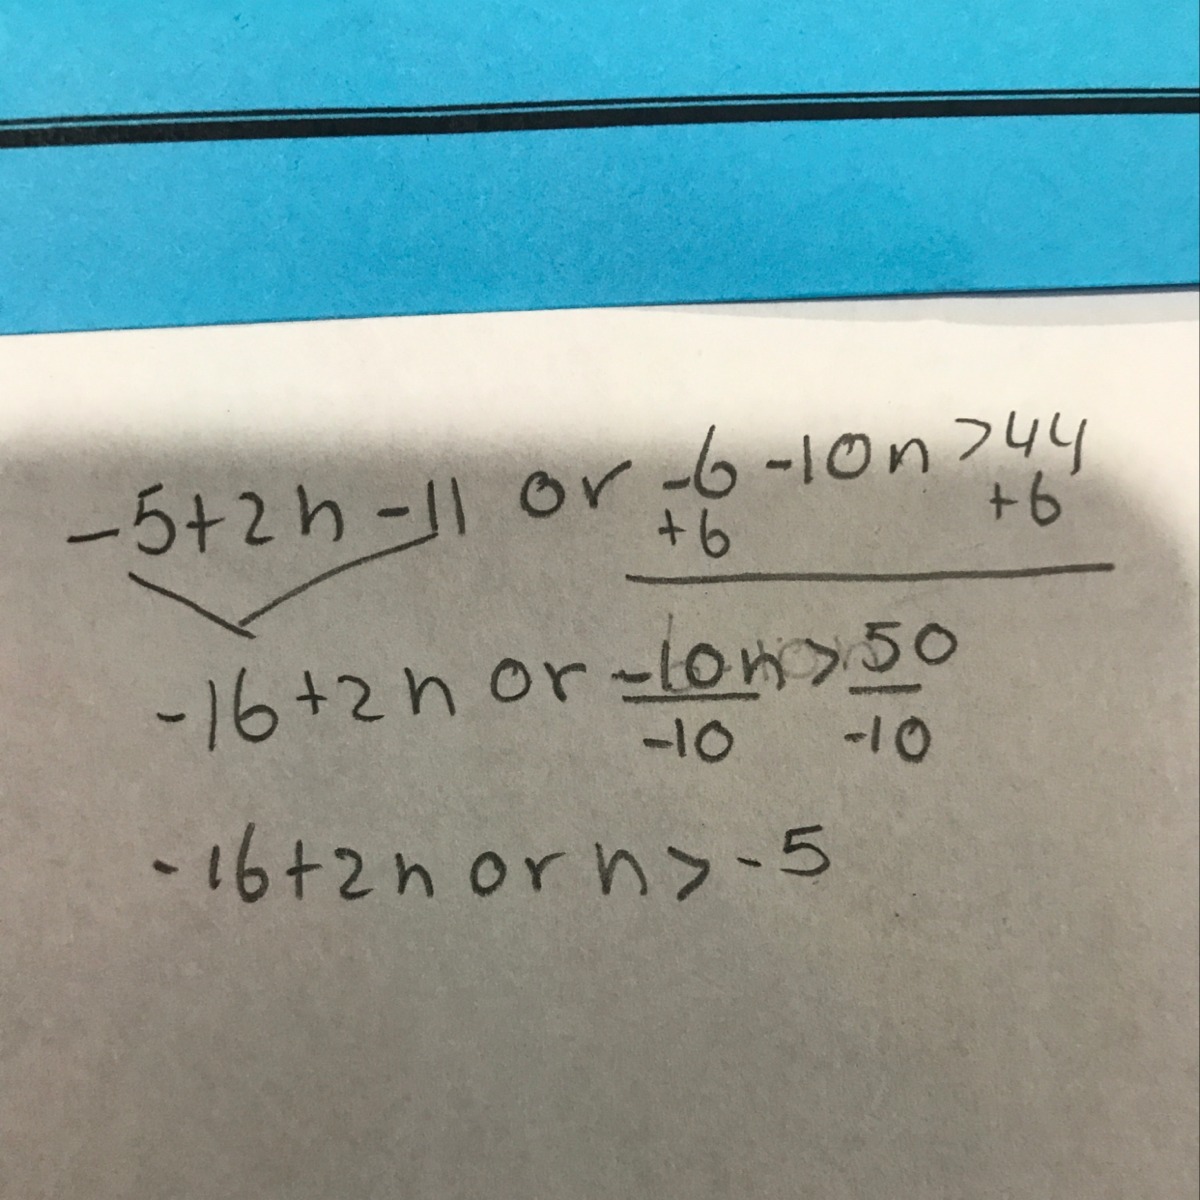 -5+2n-11 or -6-10n>44
+6 +6
-16+2n or -10n>50
-10 -10
-16+2n or n>-5